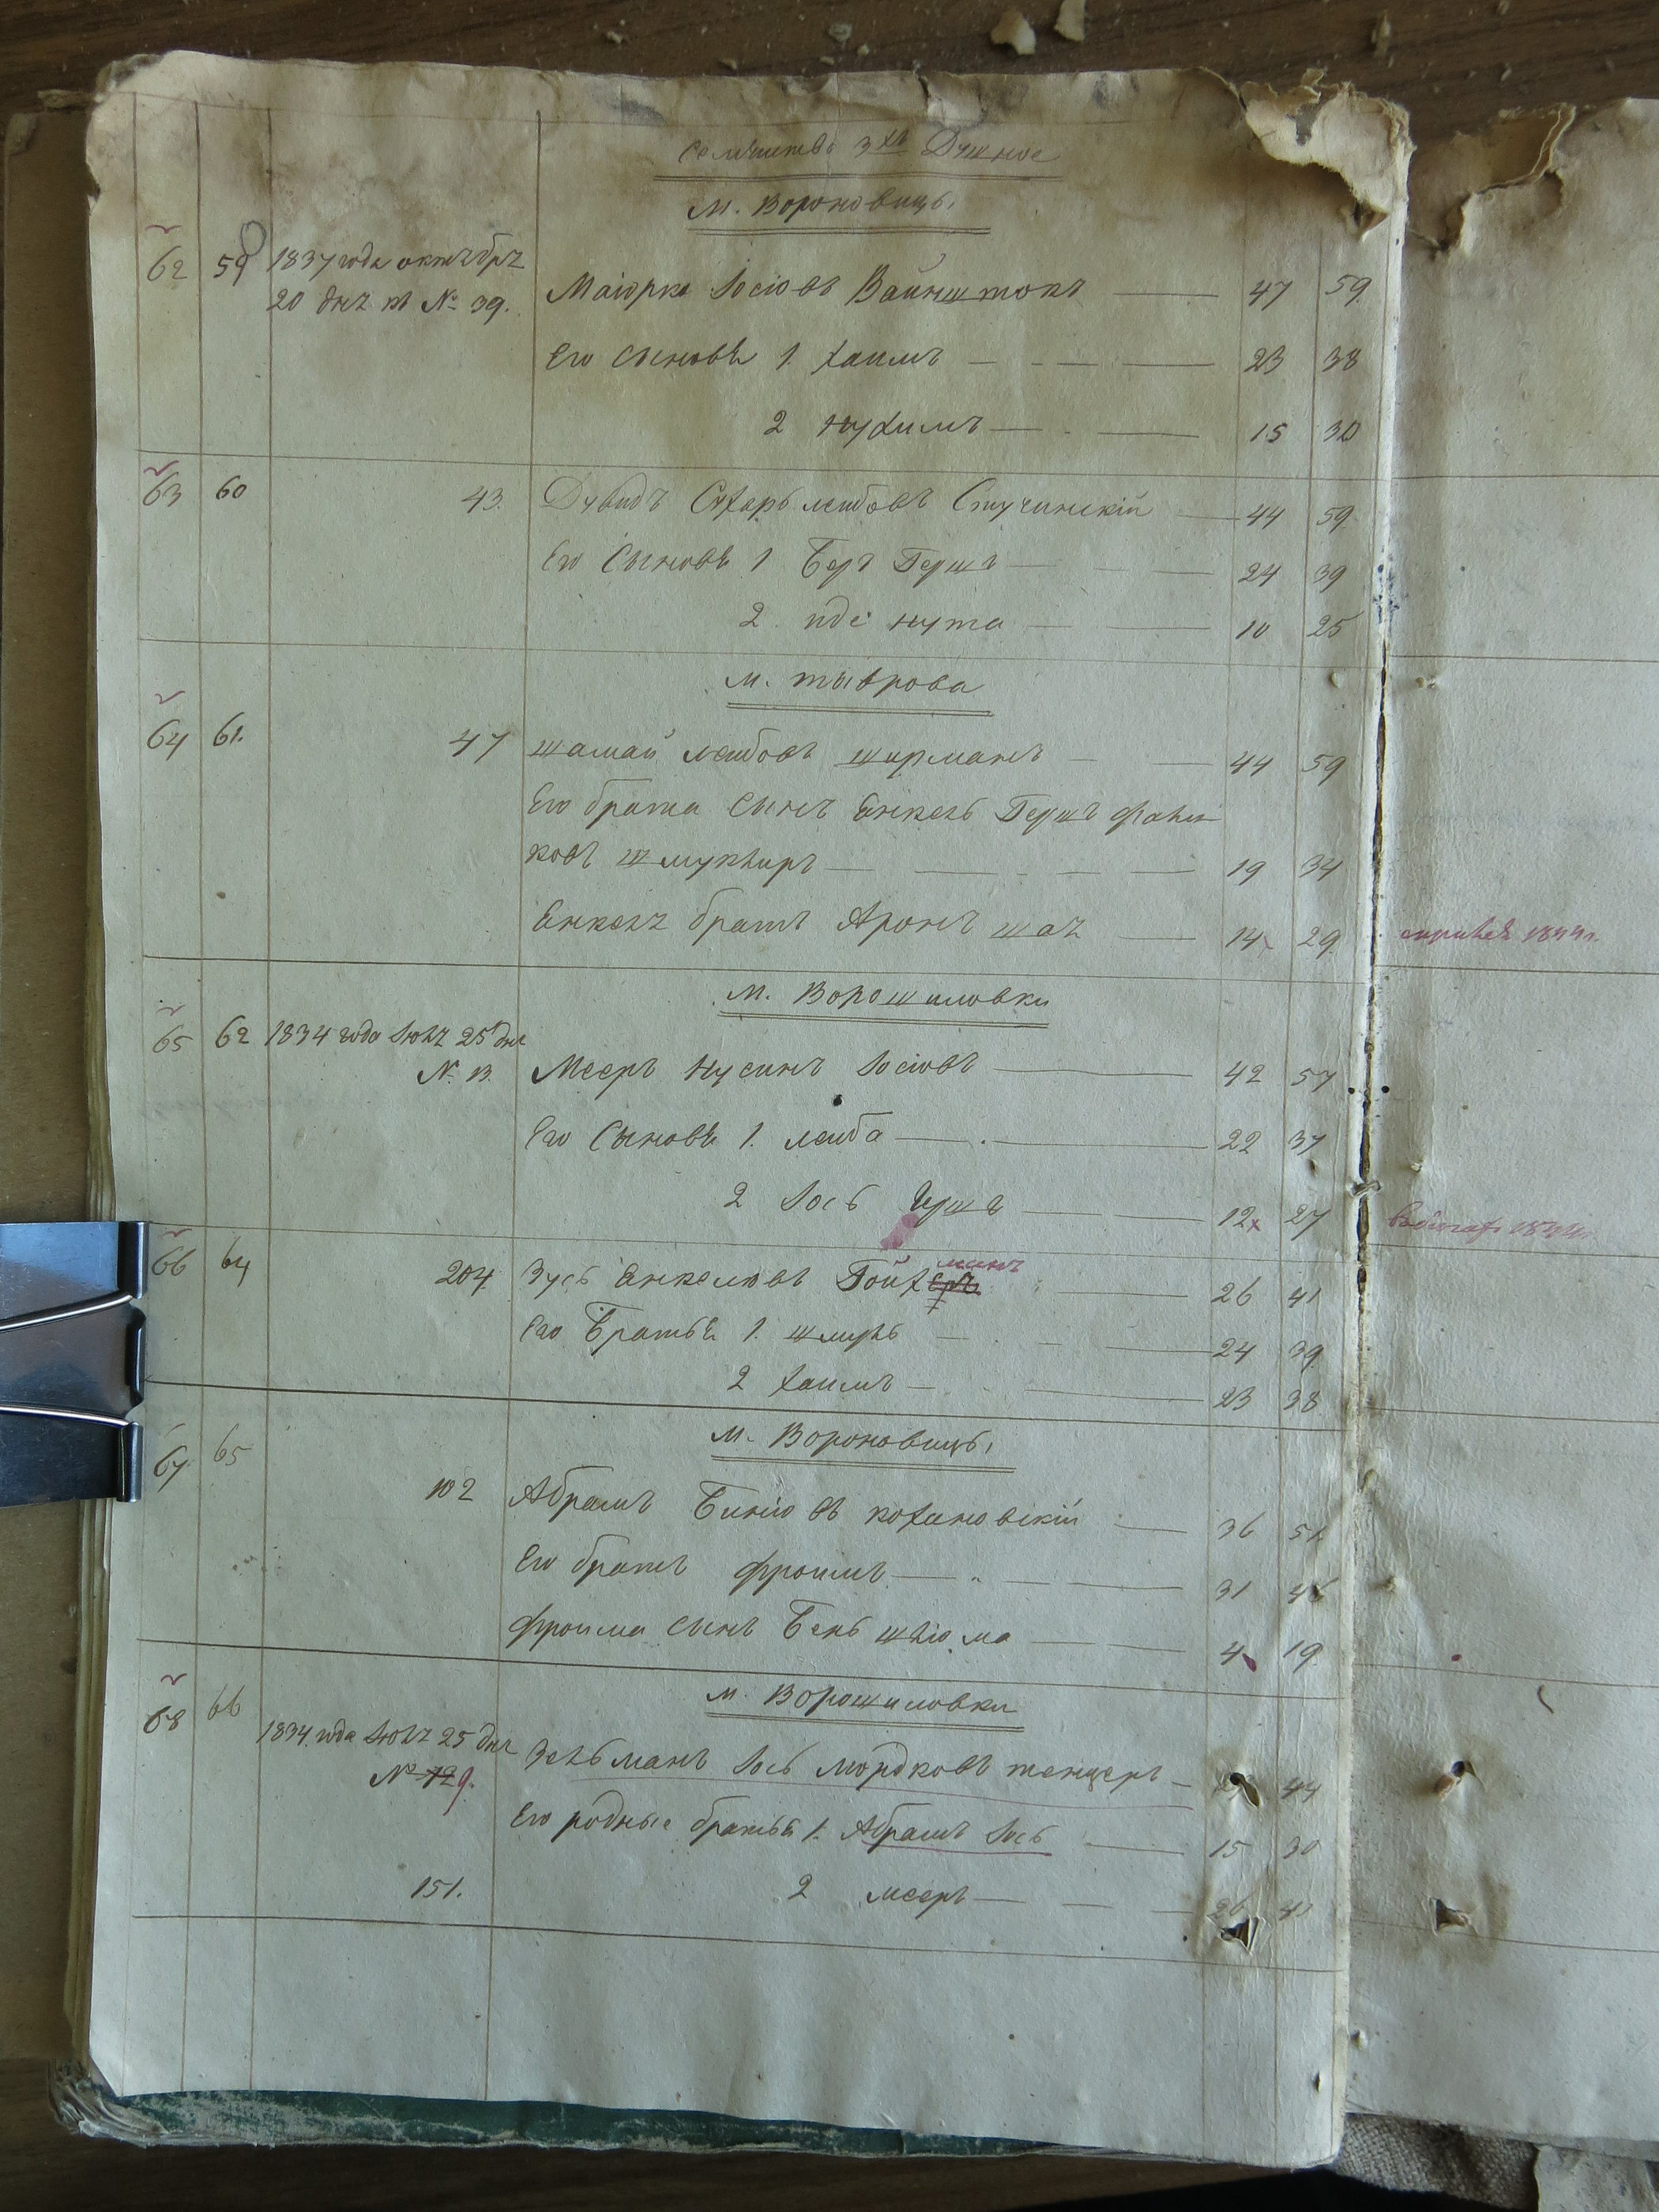 Семейства 3хъ Душное
м. Вороновицы
62 59 1837 года октября
20 дня № 39. Маіорко Іосіовъ Вайнштокъ 47 59
Его сыновья 1. Хаимъ 23 38
2 Нухимъ 15 30
63 60 43. Дувидъ Сухарь Лейбовъ Стучинскій 44 59
Его Сыновья 1 Беръ Гершъ 24 39
2. Нута 10 25
м. Тыврова
64 61. 47 Шамай Лейбовъ Ширманъ 44 59
Его брата Сынъ Енкель Гершъ
ковъ 19 34
Енкеля братъ Аронъ 14 29
м. Ворошиловки
65 62 1834 года Іюля 25 дня
№ 13. Мееръ Нусинъ Іосіовъ 42 57
Его Сыновья 1. Лейба 22 37
2 Іось Гершъ 12 27
манъ
66 64 204 Зусь Енкелювъ Гойхеръ 26 41
Его Братья 1. Шмуль 24 39
2 Хаимъ 23 38
м. Вороновицы
67 65 102 Абрамъ Биніовъ Кохановскій 36 51
Его братъ Фроимъ 31 46
Фроима сынъ Бень 4 19
м. Ворошиловки
68 66 1834 года Іюля 25 дня
№ 129. Зельманъ Іось Мордковъ Тенцеръ 44
Его родные братья 1. Абрамъ Іось 15 30
151. 2 Мееръ 26 41